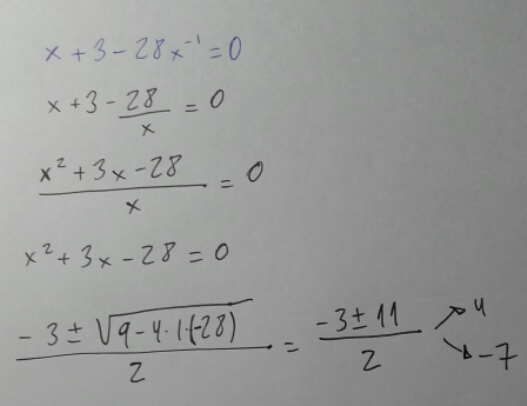 x + 3 - 28x⁻¹ = 0
x + 3 - 28/x = 0
(x² + 3x - 28)/x = 0
x² + 3x - 28 = 0
(-3 ± √(9 - 4·1·(-28)))/2 = (-3 ± 11)/2 ↗ 4 ↘ -7